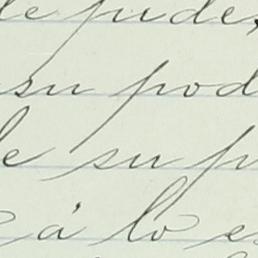 le pude
su pod
le su p
á lo es